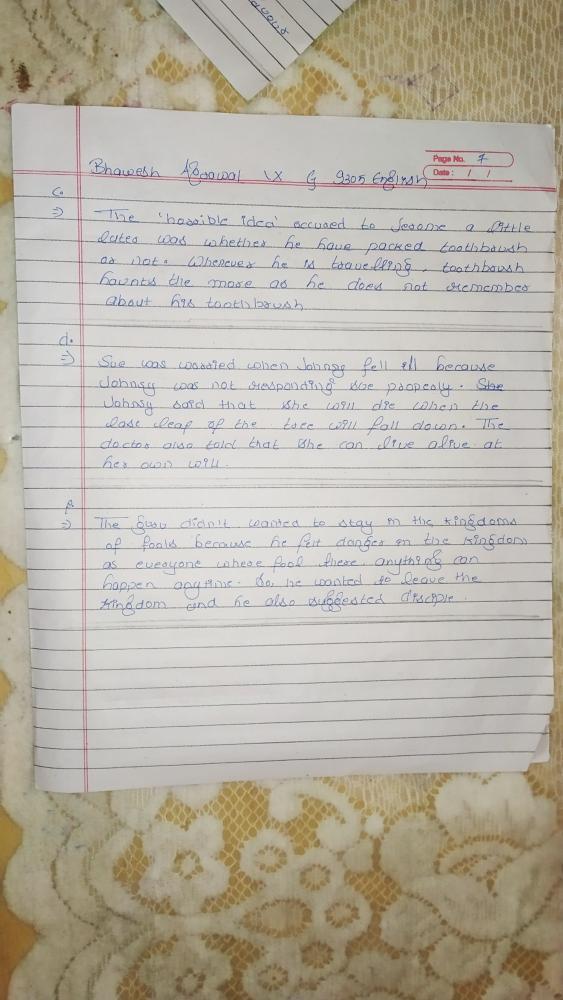 Page No. 7
Date: / /
Bhawesh Agrawal IX G 9305 English
c.
⇒ The 'horrible idea' occured to Jerome a little
later was whether he have packed toothbrush
or not. Whenever he is travelling, toothbrush
haunts the more as he does not remember
about his toothbrush
d.
⇒ Sue was worried when Johnsy fell ill because
Johnsy was not responding sue properly. She
Johnsy said that she will die when the
last leaf of the tree will fall down. The
doctor also told that she can live alive at
her own will.
⇒ The guru didn't wanted to stay in the kingdoms
of fools because he felt danger in the kingdom
as everyone where fool there, anything can
happen anytime. So, he wanted to leave the
kingdom and he also suggested disciple.